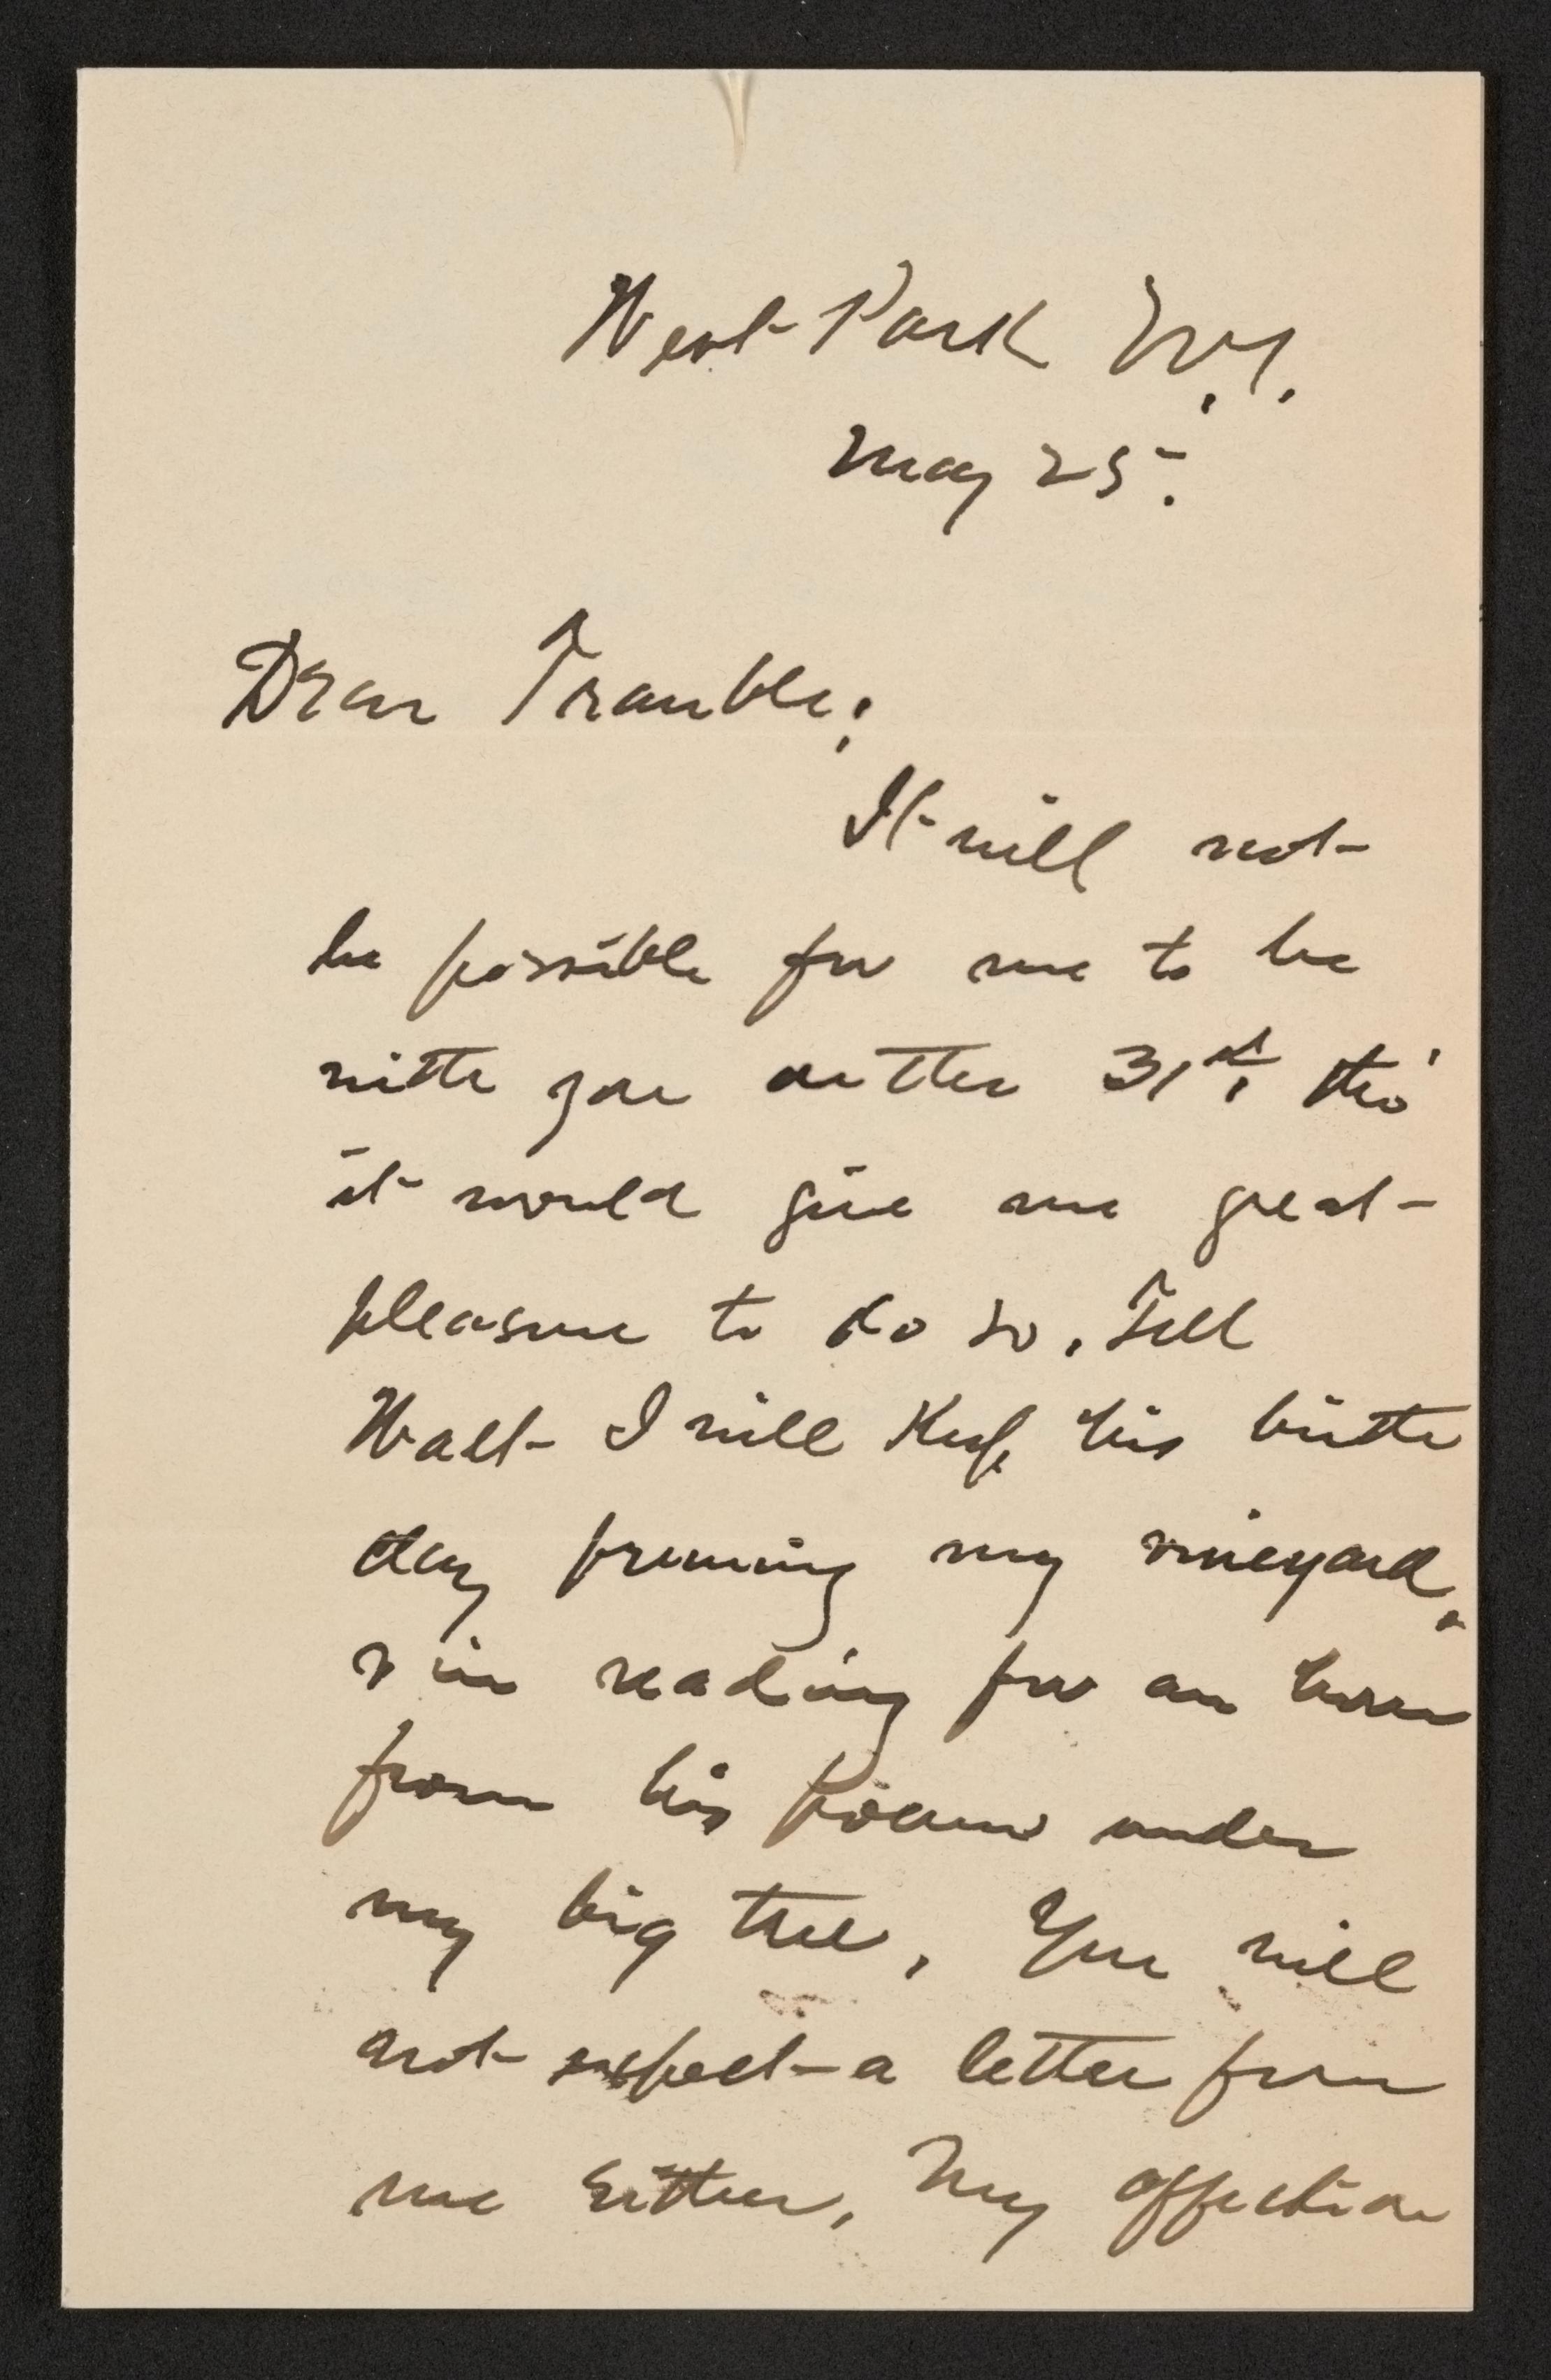 West Park N.Y.
May 25.
Dear Traubel;
It will not
be possible for me to be
with you on the 31st, tho'
it would give me great
pleasure to do so. Tell
Walt I will keep his birth
day pruning my vineyard,
& in reading for an hour
from his poems under
my big tree. You will
not expect a letter from
me either. My affection